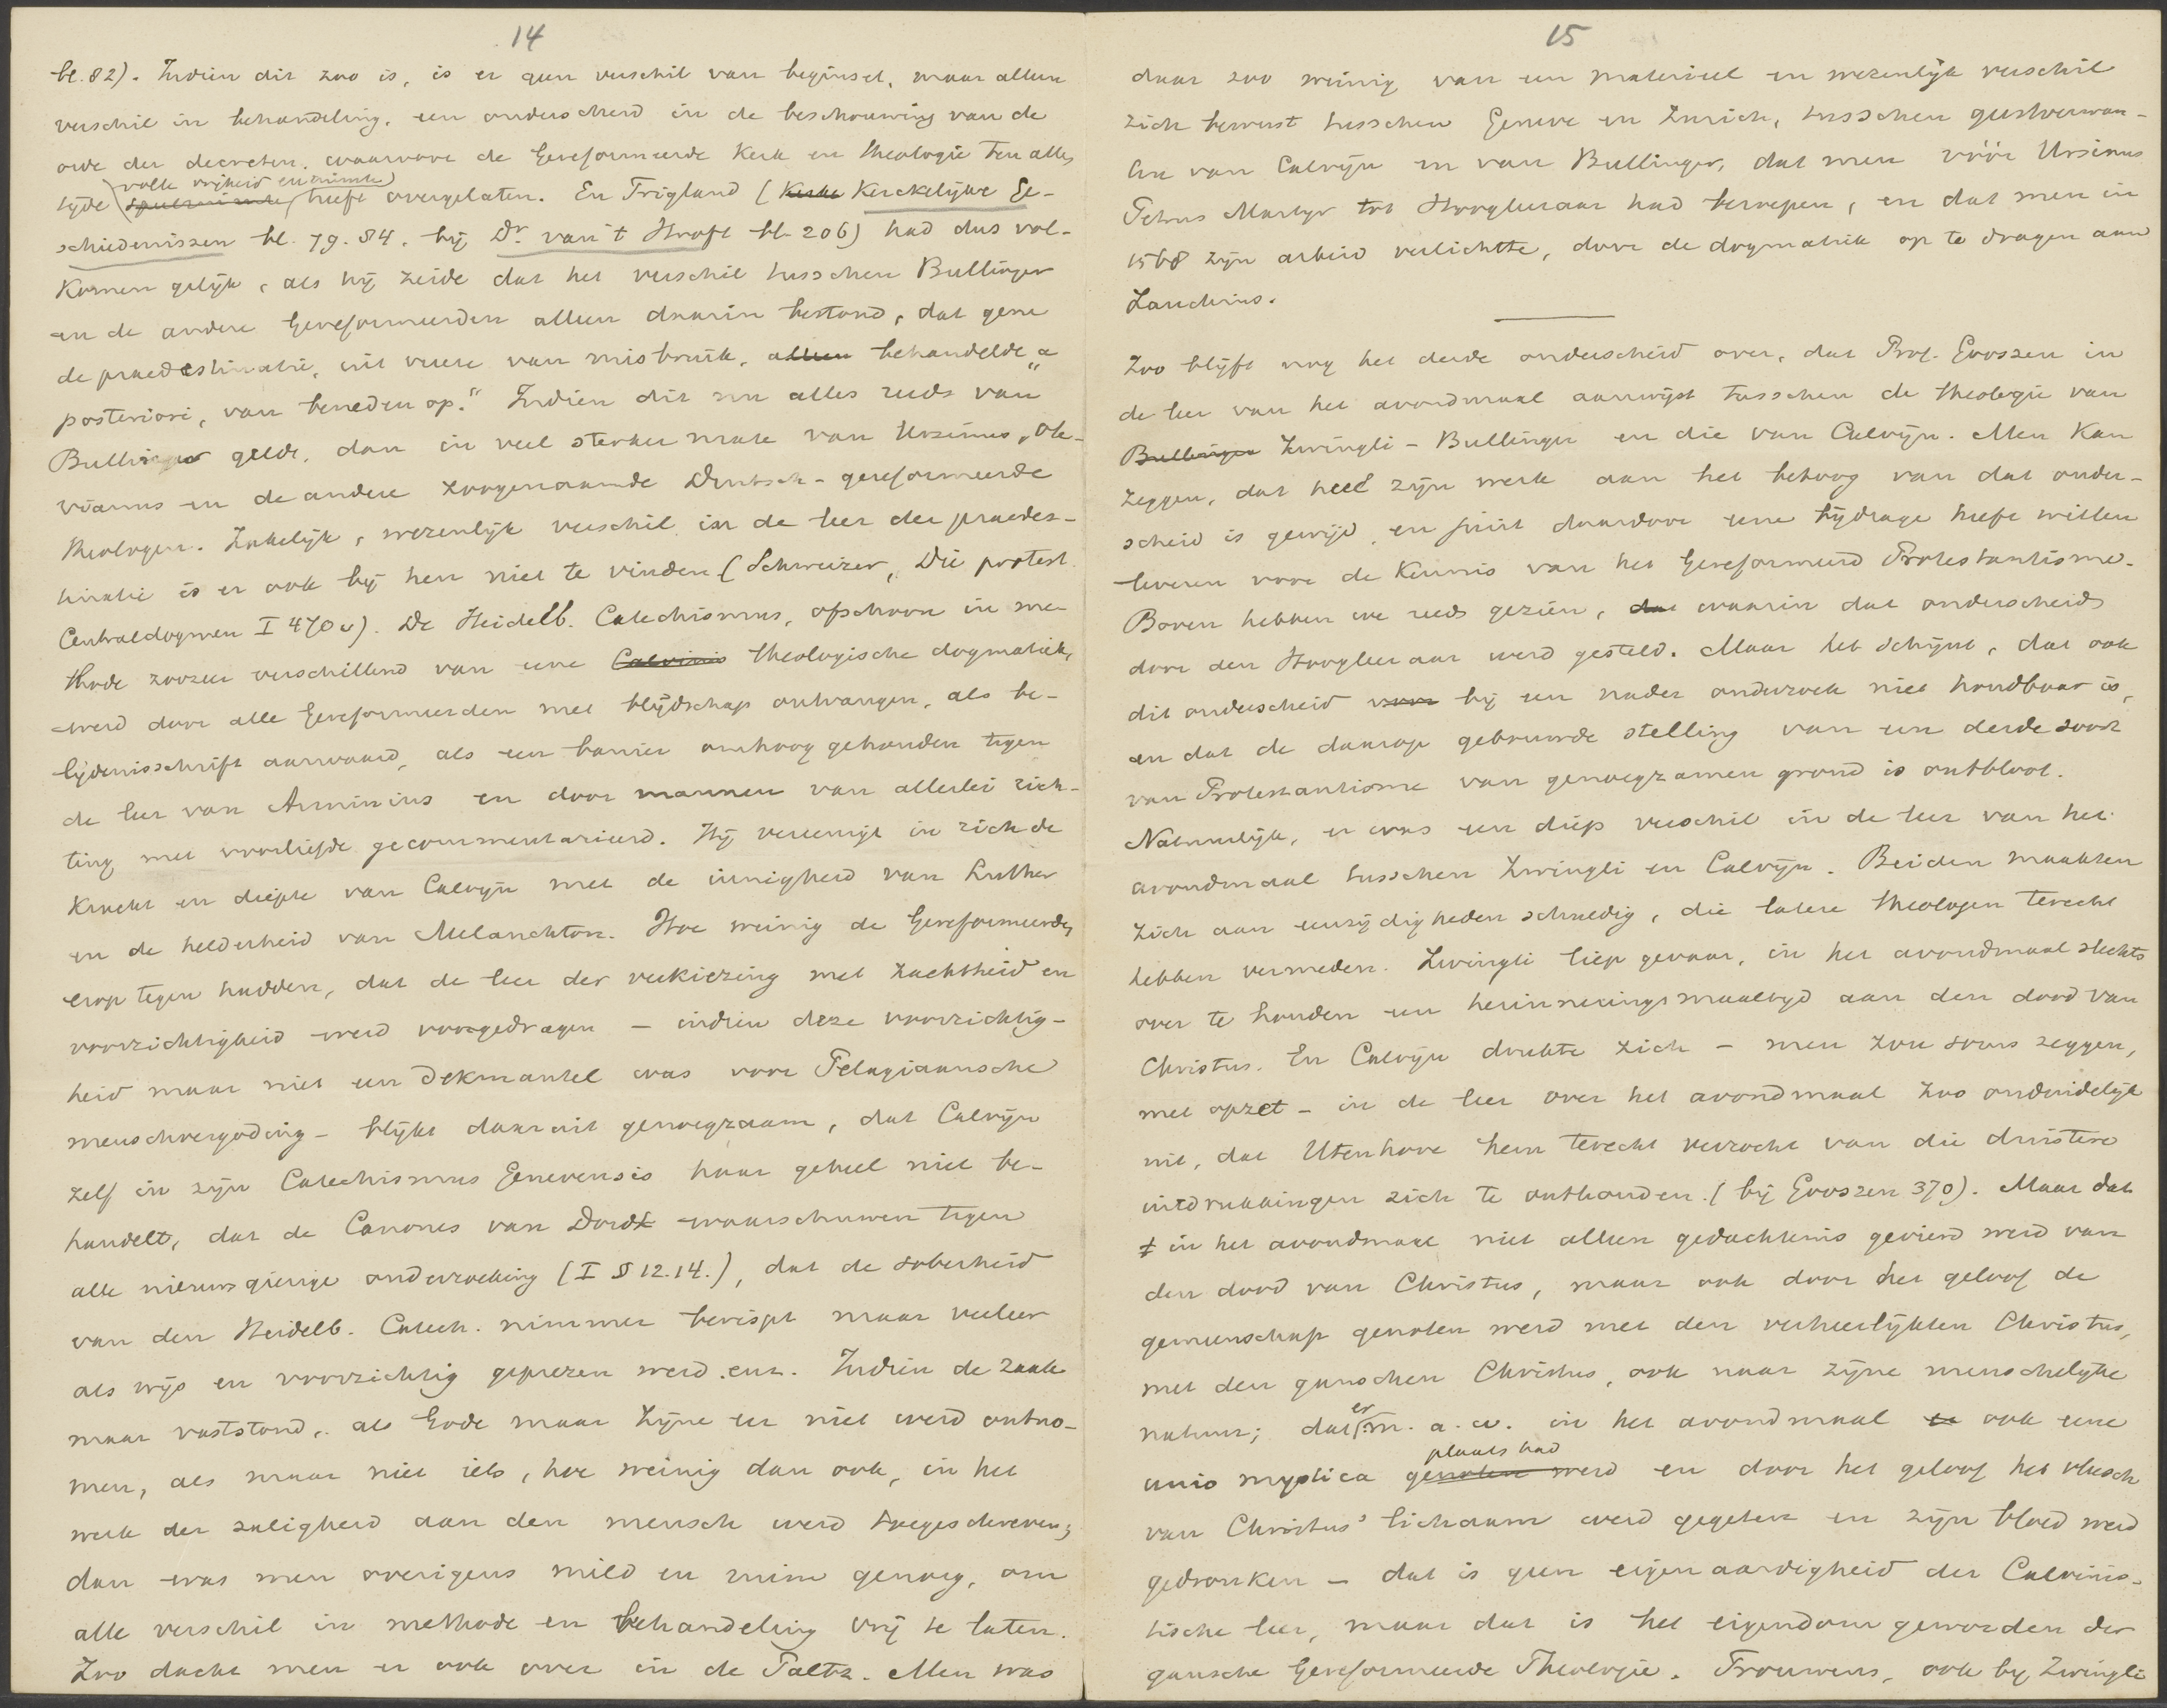 14
bl. 82). Indien dit zoo is, is er geen verschil van beginsel, maar alleen
verschil in behandeling, een onderscheid in de beschouwing van de
orde der decreten, waarvoor de Gereformeerde Kerk en theologie ten allen
volle vrijheid en ruimte
tijde speelruimte heeft overgelaten. En Trigland (Kerke Kerckelijcke Ge-
schiedenissen bl. 79. 84, bij Dr. van 't Hooft bl. 206) had dus vol-
komen gelijk, als hij zeide dat het verschil tusschen Bullinger
en de andere Gereformeerden alleen daarin bestond, dat gene
de praedestinatie, uit vreeze van misbruik, alleen behandelde „a
posteriori, van beneden op.“ Indien dit nu alles reeds van
Bullinger geldt, dan in veel sterker mate van Ursinus, Ole-
vianus en de andere zoogenaamde Duitsch-gereformeerde
theologen. Zakelijk, wezenlijk verschil in de leer der praedes-
tinatie is er ook bij hen niet te vinden (Schweizer, Die protest.
Centraldogmen I 470 v). De Heidelb. Catechismus, ofschoon in me-
thode zoozeer verschillend van eene Calvinis theologische dogmatiek,
werd door alle Gereformeerden met blijdschap ontvangen, als be-
lijdenisschrift aanvaard, als een banier omhoog gehouden tegen
de leer van Arminius en door mannen van allerlei rich-
ting met voorliefde gecommentarieerd. Hij vereenigt in zich de
kracht en diepte van Calvijn met de innigheid van Luther
en de helderheid van Melanchton. Hoe weinig de Gereformeerden
erop tegen hadden, dat de leer der verkiezing met zachtheid en
voorzichtigheid werd voorgedragen – indien deze voorzichtig-
heid maar niet een dekmantel was voor Pelagiaansche
menschvergoding – blijkt daaruit genoegzaam, dat Calvijn
zelf in zijn Catechismus Genevensis haar geheel niet be-
handelt, dat de Canones van Dordt waarschuwen tegen
alle nieuwsgierige onderzoeking (I § 12. 14.), dat de soberheid
van den Heidelb. Catech. nimmer berispt maar veeleer
als wijs en voorzichtig geprezen werd enz. Indien de zaak
maar vaststond, als Gode maar zijne eer niet werd ontno-
men, als maar niet iets, hoe weinig dan ook, in het
werk der zaligheid aan den mensch werd toegeschreven,
dan was men overigens mild en ruim genoeg, om
alle verschil in methode en behandeling vrij te laten.
Zoo dacht men er ook over in de Paltz. Men was
15
daar zoo weinig van een materieel en wezenlijk verschil
zich bewust tusschen Geneve en Zurich, tusschen geestverwan-
ten van Calvijn en van Bullinger, dat men vóór Ursinus
Petrus Martyr tot Hoogleeraar had beroepen, en dat men in
1568 zijn arbeid verlichtte, door de dogmatiek op te dragen aan
Zanchius.
Zoo blijft nog het derde onderscheid over, dat Prof. Gooszen in
de leer van het avondmaal aanwijst tusschen de theologie van
Bullinger Zwingli – Bullinger en die van Calvijn. Men kan
zeggen, dat heel zijn werk aan het betoog van dat onder-
scheid is gewijd en juist daardoor eene bijdrage heeft willen
leveren voor de kennis van het Gereformeerd Protestantisme.
Boven hebben we reeds gezien, dat waarin dat onderscheid
door den Hoogleeraar werd gesteld. Maar het schijnt, dat ook
dit onderscheid voor bij een nader onderzoek niet houdbaar is,
en dat de daarop gebouwde stelling van een derde soort
van Protestantisme van genoegzamen grond is ontbloot.
Natuurlijk, er was een diep verschil in de leer van het
avondmaal tusschen Zwingli en Calvijn. Beiden maakten
zich aan eenzijdigheden schuldig, die latere theologen terecht
hebben vermeden. Zwingli liep gevaar, in het avondmaal slechts
over te houden een herinneringsmaaltijd aan den dood van
Christus. En Calvijn drukte zich – men zou soms zeggen,
met opzet – in de leer over het avondmaal zoo onduidelijk
uit, dat Utenhove hem terecht verzocht van die duistere
uitdrukkingen zich te onthouden. (bij Gooszen 370). Maar dat
in het avondmaal niet alleen gedachtenis gevierd werd van
den dood van Christus, maar ook door het geloof de
gemeenschap genoten werd met den verheerlijkten Christus,
met den ganschen Christus, ook naar zijne menschelijke
er
natuur; dat m. a. w. in het avondmaal er ook eene
plaats had
unio mystica genoten werd en door het geloof het vleesch
van Christus' lichaam werd gegeten en zijn bloed werd
gedronken – dat is geen eigenaardigheid der Calvinis-
tische leer, maar dat is het eigendom geworden der
gansche Gereformeerde Theologie. Trouwens, ook bij Zwingli